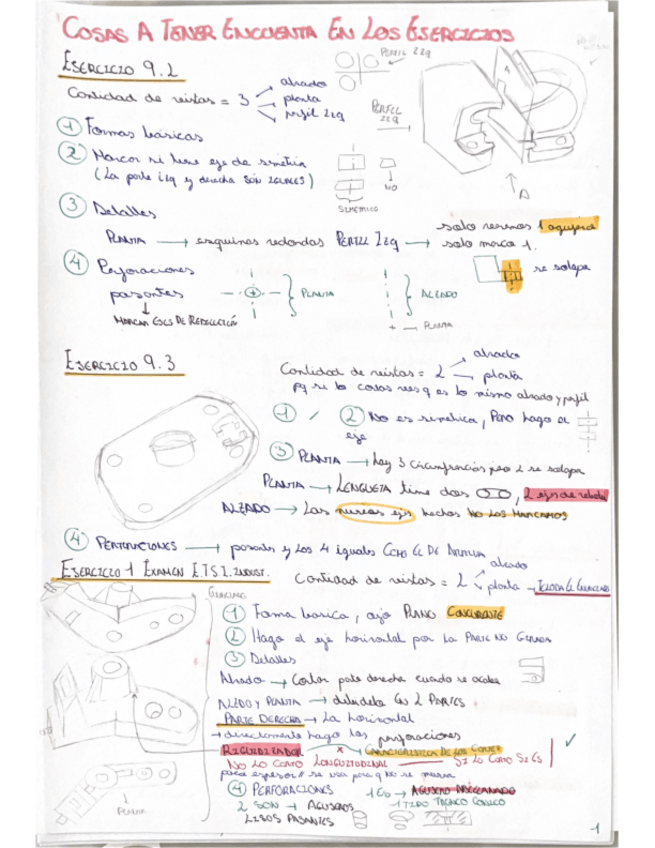 COSAS A TENER ENCUENTA EN LOS EJERCICIOS
EJERCICIO 9.2
PERFIL IZQ
Cantidad de vistas = 3
alzado
planta
perfil izq
PERFIL IZQ
A
A
1 Formas básicas
2 Marcar si tiene eje de simetría
(La parte izq y derecha SON IGUALES)
NO
SIMETRICO
3 Detalles
PLANTA → esquinas redondas
PERFIL Izq → solo vemos 1 agujero
solo marco 1.
se solapa
4 Perforaciones
pasantes
MARCAR EJES DE REVOLUCIÓN
PLANTA
ALZADO
PLANTA
EJERCICIO 9.3
Cantidad de vistas = 2
alzado
planta
pq si te das
es lo mismo alzado y perfil
1
2 No es simetrica, PERO hago el
eje
3 PLANTA → hay 3 circunferencias pero 2 se solapan
PLANTA → LENGUETA tiene dos
, 2 ejes de
ALZADO → Las nuevas ejes hechas NO LOS MARCAMOS
4 PERFORACIONES → pasantes y los 4 iguales
EJERCICIO 1 EXAMEN E.T.S.I. INDUST.
Cantidad de vistas = 2
alzado
planta →
1 Forma basica, ojo PLANO CONCURRENTE
2 Hago el eje horizontal por la PARTE NO GIRADA
3 Detalles
Alzado → Cortar parte derecha cuando se acaba
ALZADO Y PLANTA → dividido en 2 PARTES
PARTE DERECHA → La horizontal
→ directamente hago las perforaciones
RIGUIDIZADOR
x
CARACTERISTICA DE LOS CORTES
NO LO CORTO LONGUITUDINAL
SI LO CORTO
poco espesor
se usa para q no se mueva
4 PERFORACIONES
1 ES → AGUJERO AVELLANADO
2 SON → AGUJEROS
1 TIPO TRONCO CONICO
LISOS PASANTES
PLANTA
1